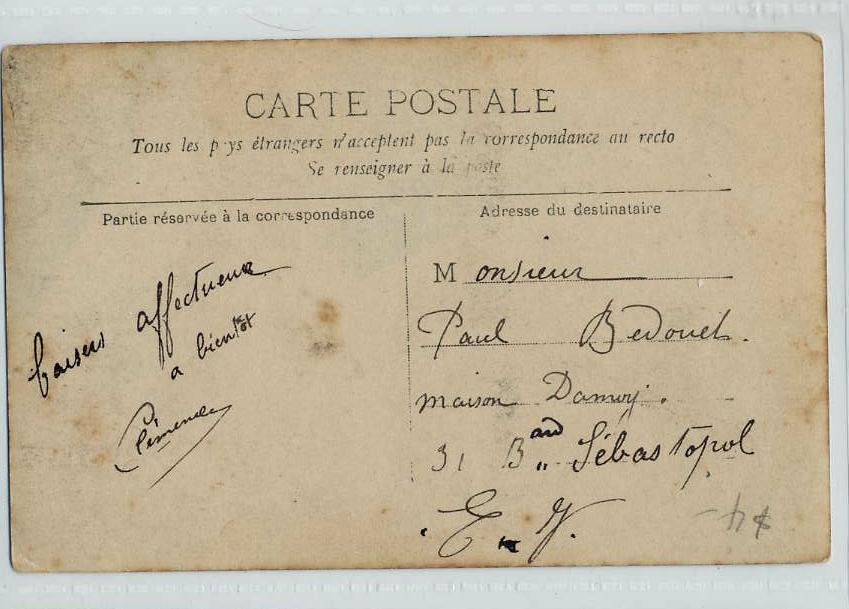 CARTE POSTALE
Tous les pays étrangers n'acceptent pas la correspondance au recto
Se renseigner à la poste
Partie réservée à la correspondance
Adresse du destinataire
baisers affectueux
a bientôt
Clémence
Monsieur
Paul Bedouet.
maison Damoy.
31 Bard Sébastopol
E. V.